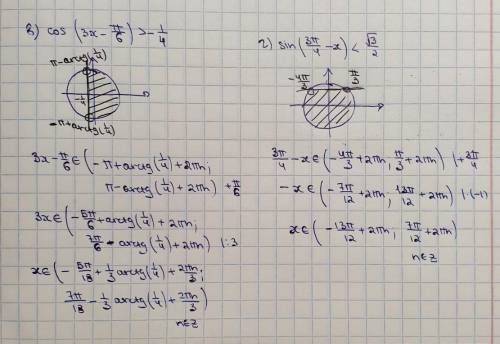 в) cos (3x - π/6) > - 1/4
π-arccos(1/4)
-1/4
-π+arccos(1/4)
3x - π/6 ∈ (-π + arccos(1/4) + 2πn;
π - arccos(1/4) + 2πn) + π/6
3x ∈ (- 5π/6 + arccos(1/4) + 2πn;
7π/6 - arccos(1/4) + 2πn) |:3
x ∈ (- 5π/18 + 1/3 arccos(1/4) + 2πn/3;
7π/18 - 1/3 arccos(1/4) + 2πn/3)
n∈Z
г) sin (3π/4 - x) < √3/2
-4π/3
π/3
3π/4 - x ∈ (- 4π/3 + 2πn, π/3 + 2πn) | + 3π/4
-x ∈ (- 7π/12 + 2πn, 13π/12 + 2πn) |·(-1)
x ∈ (- 13π/12 + 2πn; 7π/12 + 2πn)
n∈Z